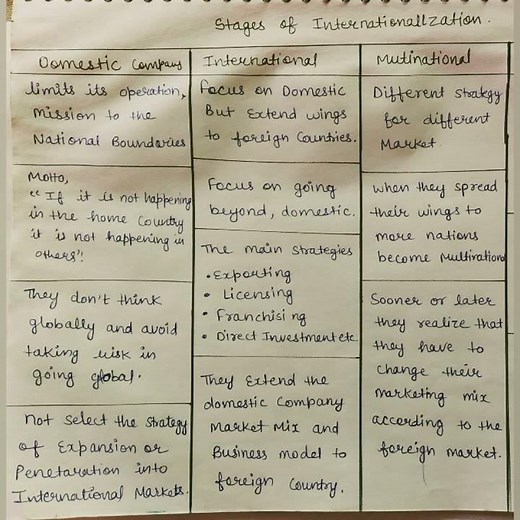 Stages of Internationalization.
Domestic Company
limits its operation,
Mission to the
National Boundaries
Motto,
"If it is not happening
in the home country
it is not happening in
others"!
They don't think
globally and avoid
taking risk in
going global.
Not select the strategy
of Expansion or
Penetaration into
International Markets.
International
Focus on Domestic
But Extend wings
to foreign Countries.
Focus on going
beyond, domestic.
The main strategies
• Exporting
• Licensing
• Franchising
• Direct Investment etc
They Extend the
domestic Company
Market Mix and
Business model to
foreign Country.
Mutinational
Different strategy
for different
Market
When they spread
their wings to
more nations
become Multinational
Sooner or later
they realize that
they have to
change their
marketing mix
according to the
foreign market.